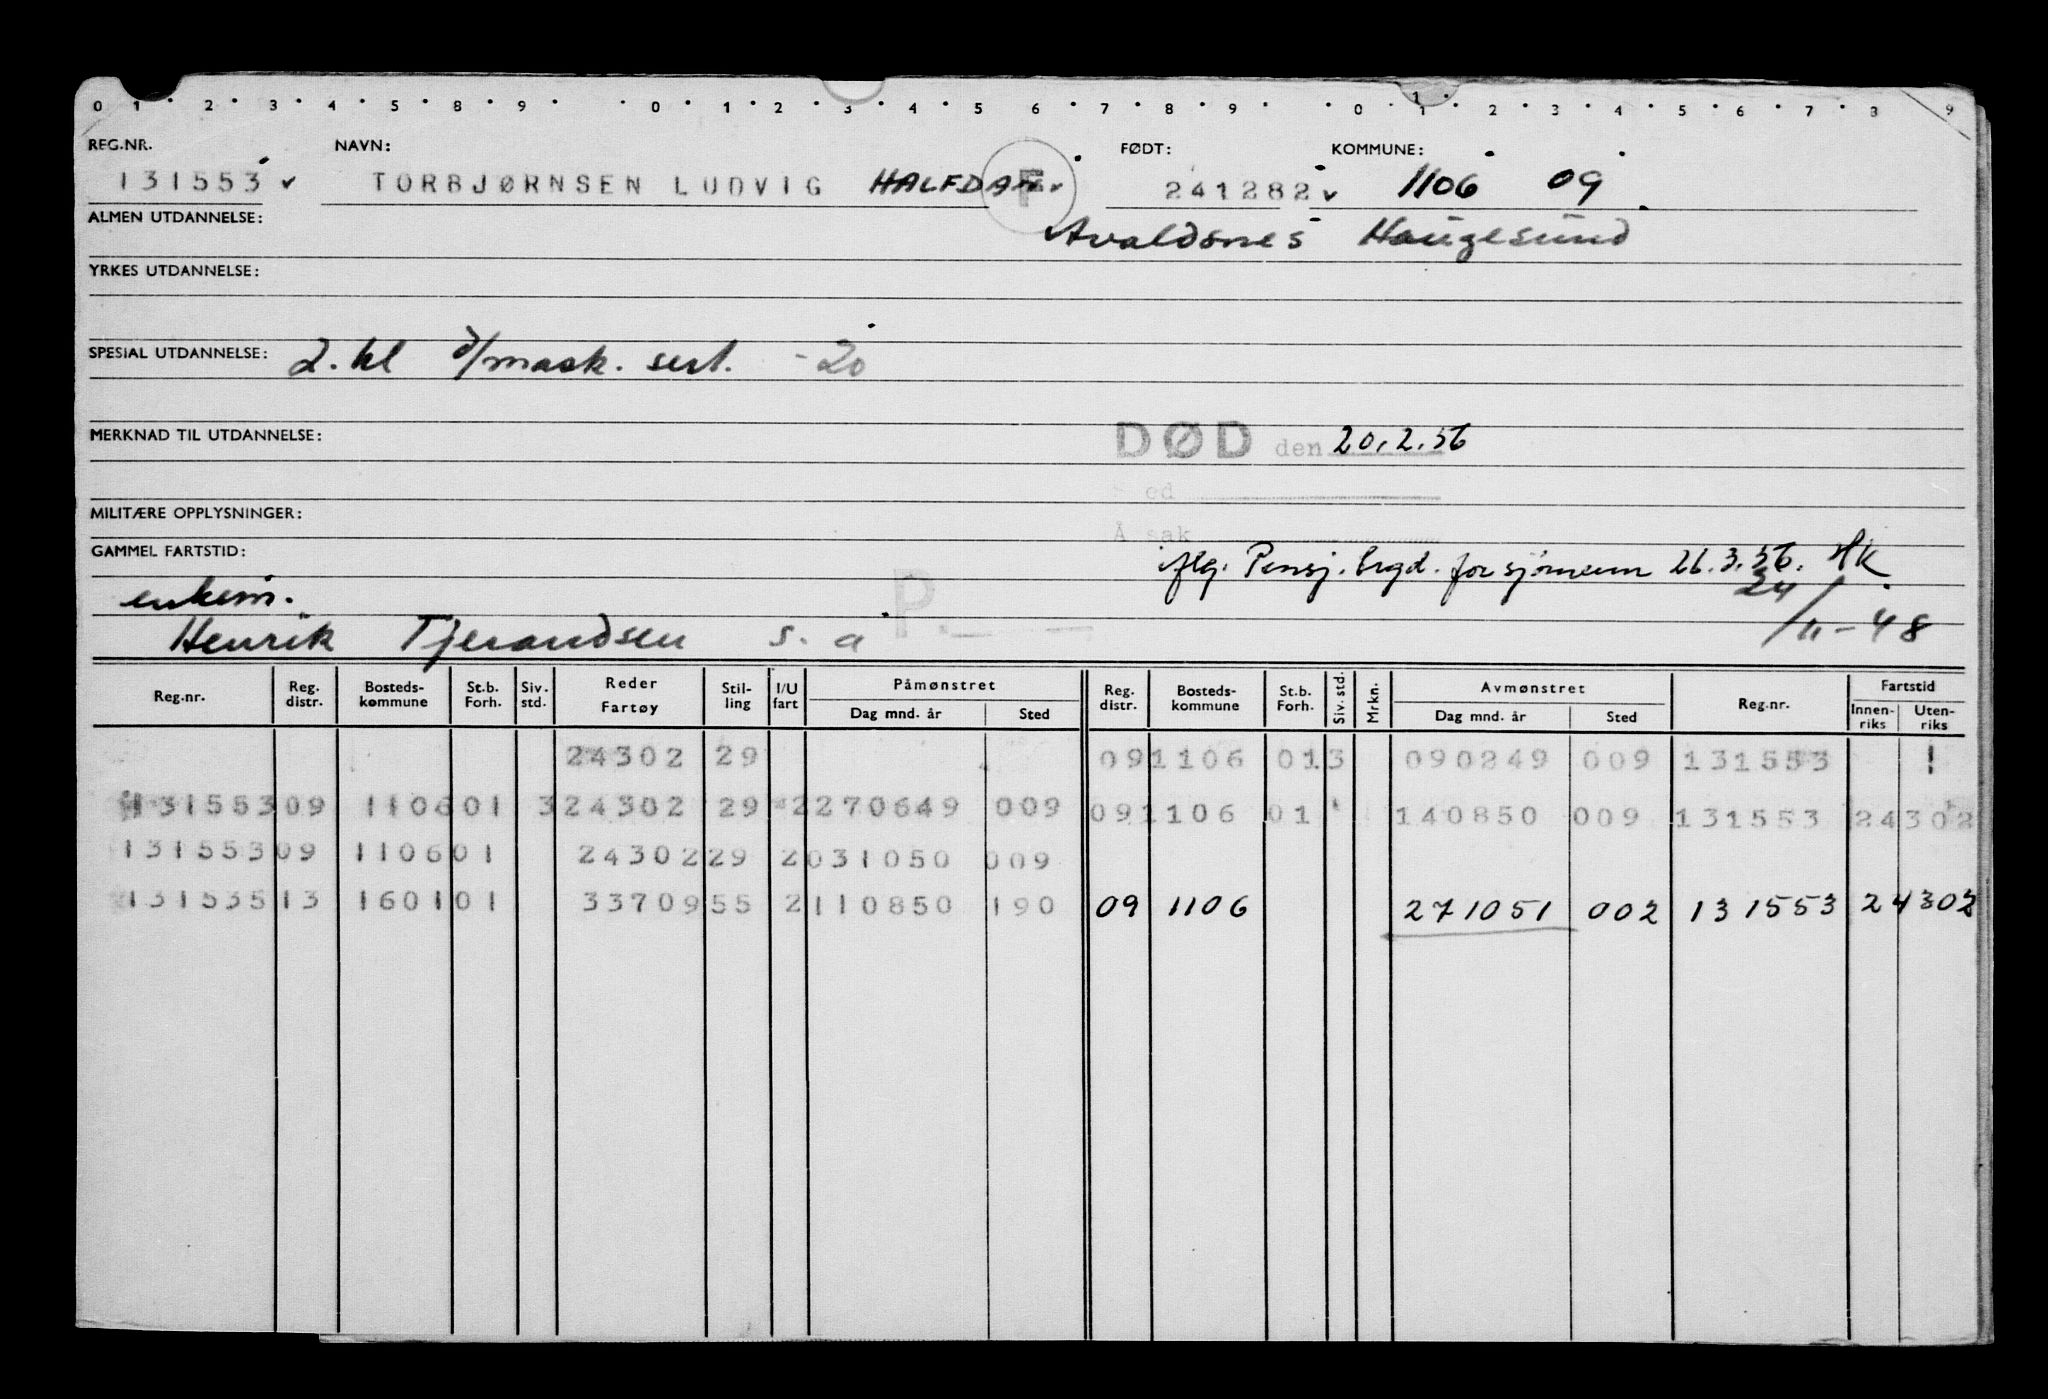 0 1 2 3 4 5 8 9 0 1 2 3 4 5 6 7 8 9 0 1 2 3 4 5 6 7 8 9
REG.NR. NAVN: FØDT: KOMMUNE:
131553 TORBJØRNSEN LUDVIG HALFDAN F 241282 1106 09
ALMEN UTDANNELSE: Avaldsnes Haugesund
YRKES UTDANNELSE:
SPESIAL UTDANNELSE: 2. kl d/mask. sert. -20
MERKNAD TIL UTDANNELSE: DØD den 20.2.56
ed
MILITÆRE OPPLYSNINGER: Å sak
GAMMEL FARTSTID: iflg. Pensj. trygd. for sjømenn 26.3.56. HK
enkem. P. 24/11-48
Henrik Tjerandsen s. a
Reg.nr. Reg. distr. Bosteds-kommune St.b. Forh. Siv. std. Reder Fartøy Stil-ling I/U fart Påmønstret Dag mnd. år Sted Reg. distr. Bosteds-kommune St.b. Forh. Siv. std. Mrkn. Avmønstret Dag mnd. år Sted Reg.nr. Fartstid Innen-riks Uten-riks
24302 29 09 1106 01 3 090249 009 131553 1
131553 09 1106 01 3 24302 29 2 270649 009 09 1106 01 140850 009 131553 24302
131553 09 1106 01 24302 29 2 031050 009
131535 13 1601 01 33709 55 2 110850 190 09 1106 271051 002 131553 24302